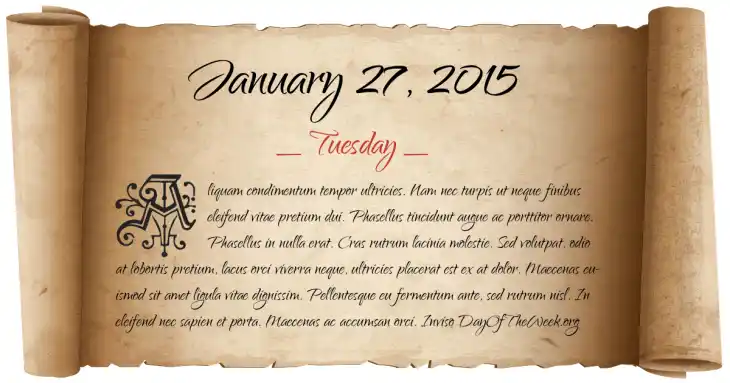 January 27, 2015
_ Tuesday _
Aliquam condimentum tempor ultricies. Nam nec turpis ut neque finibus
eleifend vitae pretium dui. Phasellus tincidunt augue ac porttitor ornare.
Phasellus in nulla erat. Cras rutrum lacinia molestie. Sed volutpat, odio
at lobortis pretium, lacus orci viverra neque, ultricies placerat est ex at dolor. Maecenas eu-
ismod sit amet ligula vitae dignissim. Pellentesque eu fermentum ante, sed rutrum nisl. In
eleifend nec sapien et porta. Maecenas ac accumsan orci. Inviso DayOfTheWeek.org